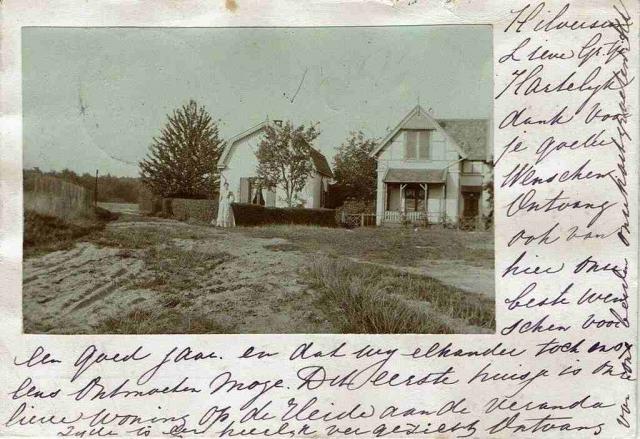 Hilversum
Lieve
Hartelijk
dank voor
je goede
Wenschen
Ontvang
ook van
hier onze
beste wen
schen voor
een goed jaar. en dat wij elkander toch eens
eens Ontmoeten Moge. Dit eerste huisje is on
lieve Woning Op de Heide aan de Veranda
Zijde is een heerlijk vergezicht Ontvang
van ons beiden